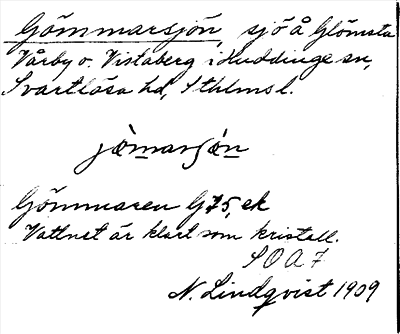 Gömmarsjön, sjö å Glömsta
Vårby o. Vistaberg i Huddinge sn,
Svartlösa hd, Sthlms l.
jò̤marʃò̤n
Gömmaren G 75, ek
Vattnet är klart som kristall.
SOA 7
N. Lindqvist 1909